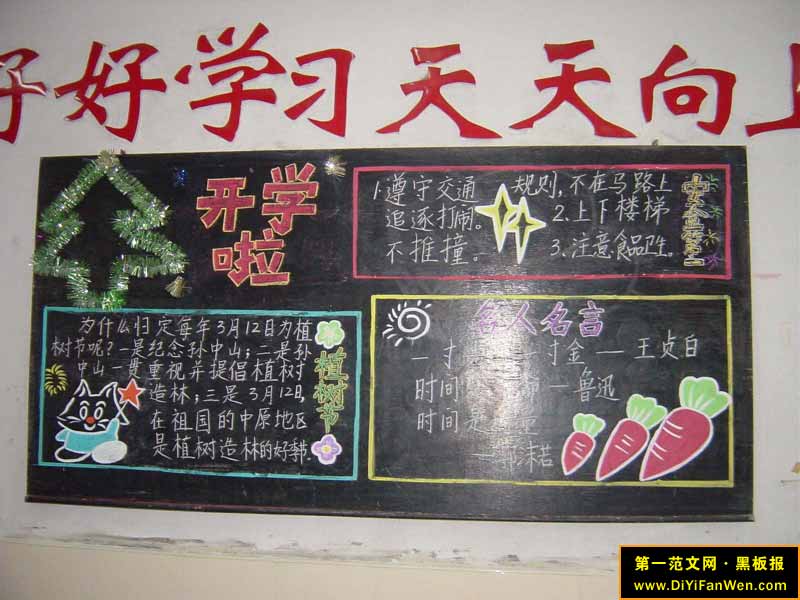 好好学习天天向上
开学
啦
1.遵守交通规则,不在马路上
追逐打闹。2.上下楼梯
不推撞。3.注意食品卫生。
为什么归定每年3月12日为植
树节呢?一是纪念孙中山;二是孙
中山一贯重视并提倡植树
造林;三是3月12日,
在祖国的中原地区
是植树造林的好季节.
植树节
名人名言
一寸 一寸金 — 王贞白
时间 — 鲁迅
时间是
—郭沫若
第一范文网·黑板报
www.DiYiFanWen.com